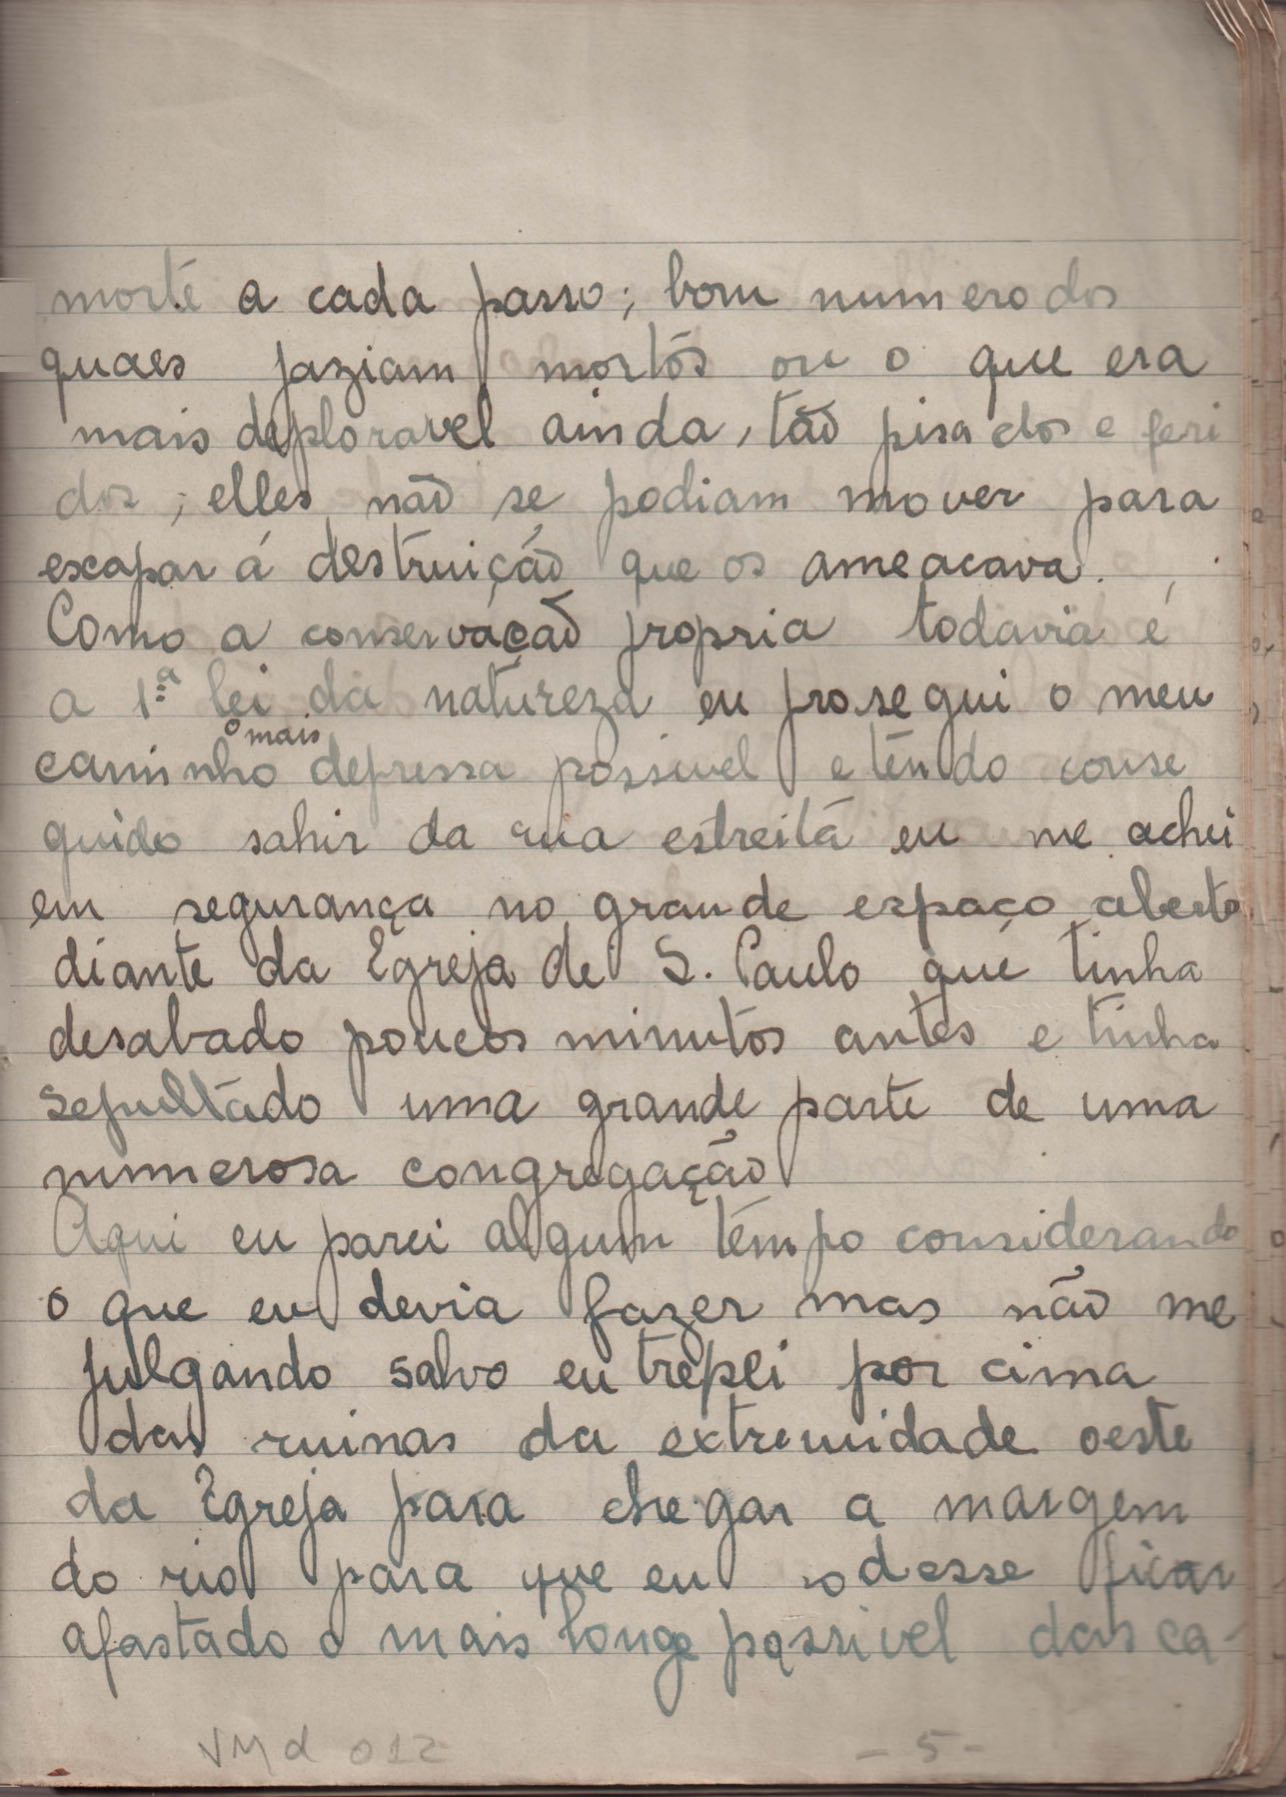 morte a cada passo; bom numero dos
quaes jaziam mortos ou o que era
mais deploravel ainda, tão pisados e feri
dos; elles não se podiam mover para
escapar á destruição que os ameacava.
Como a conservação propria todavia é
a 1ª lei da natureza eu prosegui o meu
o mais
caminho depressa possivel e tendo conse
guido sahir da rua estreita eu me achei
em segurança no grande espaço aberto
diante da Egreja de S. Paulo que tinha
desabado poucos minutos antes e tinha
sepultado uma grande parte de uma
numerosa congregação
Aqui eu parei algum tempo considerando
o que eu devia fazer mas não me
julgando salvo eu trepei por cima
das ruinas da extremidade oeste
da Egreja para chegar a margem
do rio para que eu podesse ficar
afastado o mais longe possivel das ca-
VMd 012 - 5 -